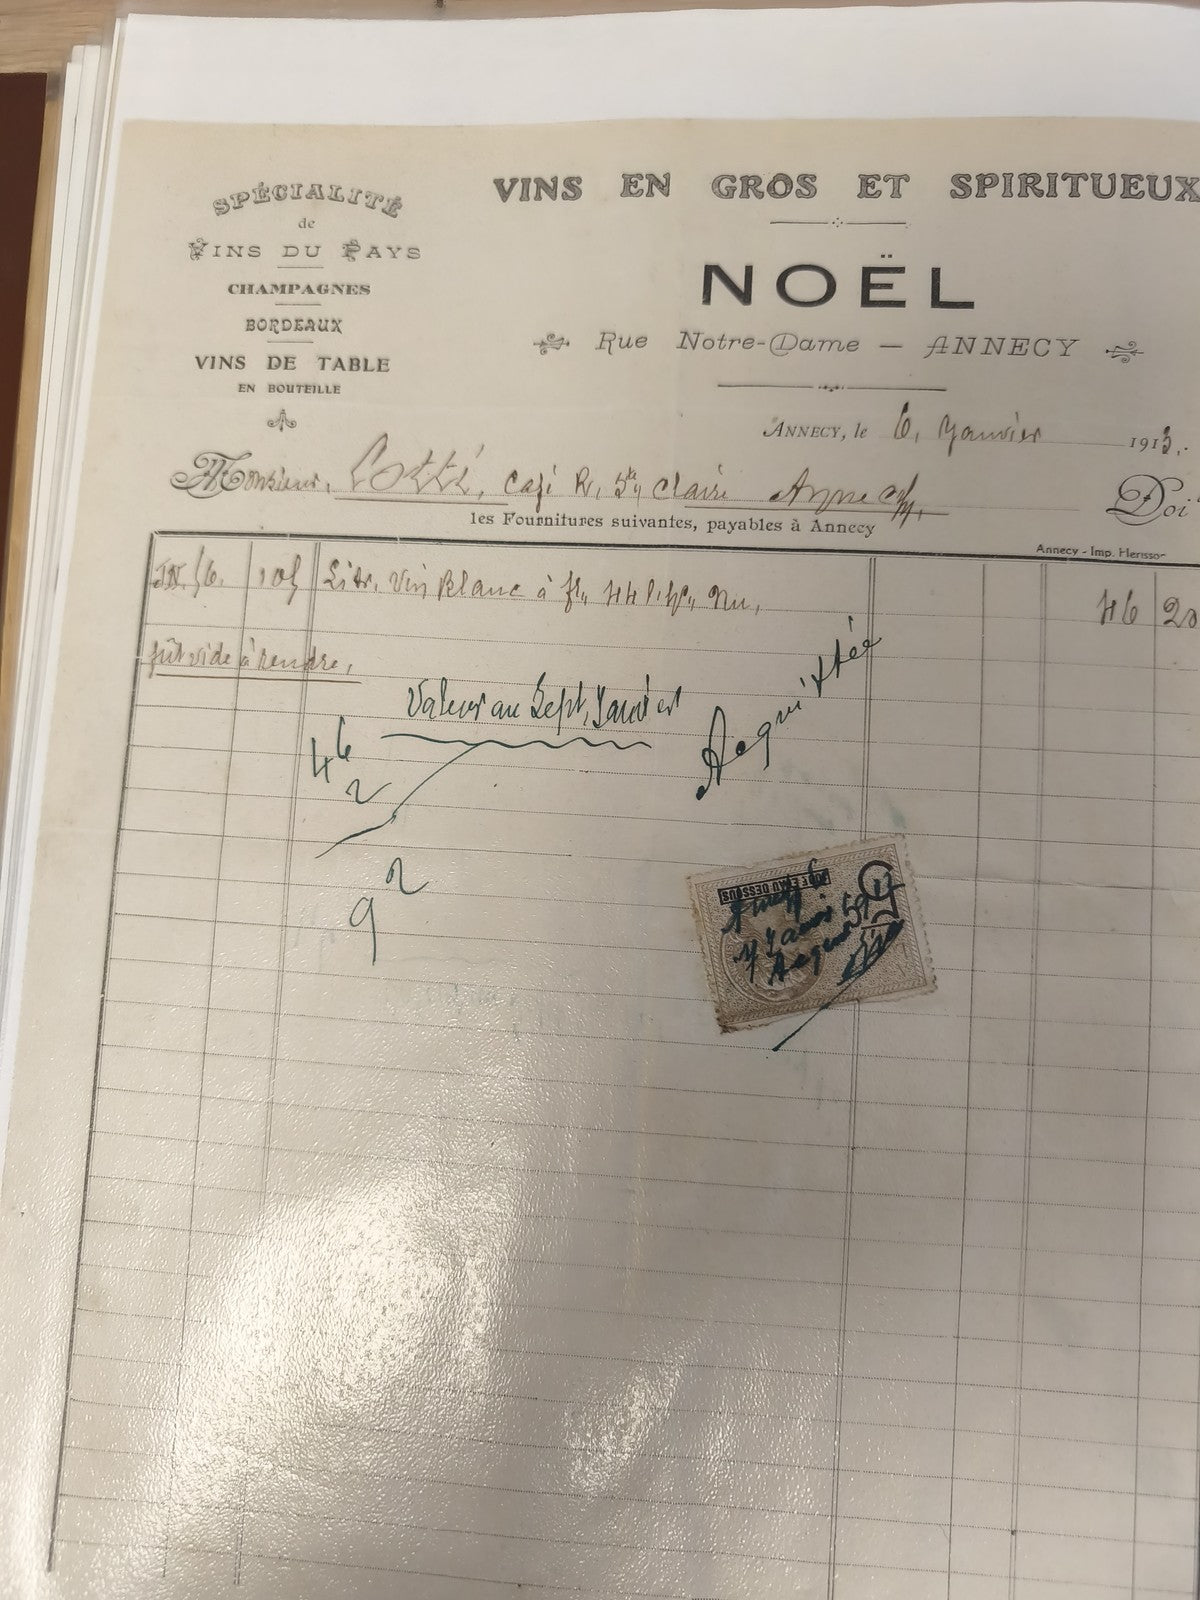 SPÉCIALITÉ
de
VINS DU PAYS
CHAMPAGNES
BORDEAUX
VINS DE TABLE
EN BOUTEILLE
VINS EN GROS ET SPIRITUEUX
NOËL
Rue Notre-Dame — ANNECY
ANNECY, le 6, Janvier 1913.
Monsieur, Cotti, Café R, Ste Claire Annecy, Doi
les Fournitures suivantes, payables à Annecy
Annecy - Imp. Herisson
105 Litr, Vin Blanc à 46 20
fût vide à rendre,
Valeur au Sept, Janvier
Acquittée
46
2
92